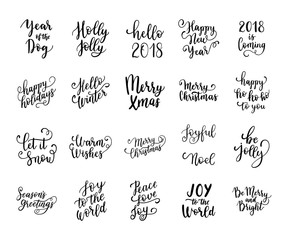 Year
of the
Dog
Holly
Jolly
hello
2018
Happy
New
Year
2018
is
Coming
happy
holidays
Hello
Winter
Merry
Xmas
Merry
Christmas
happy
ho ho ho
to you
let it
Snow
Warm
Wishes
Merry
Christmas
Joyful
Noel
be
Jolly
Season's
Greetings
Joy
to the
World
Peace
Love
Joy
JOY
to the
World
Be Merry
and
Bright